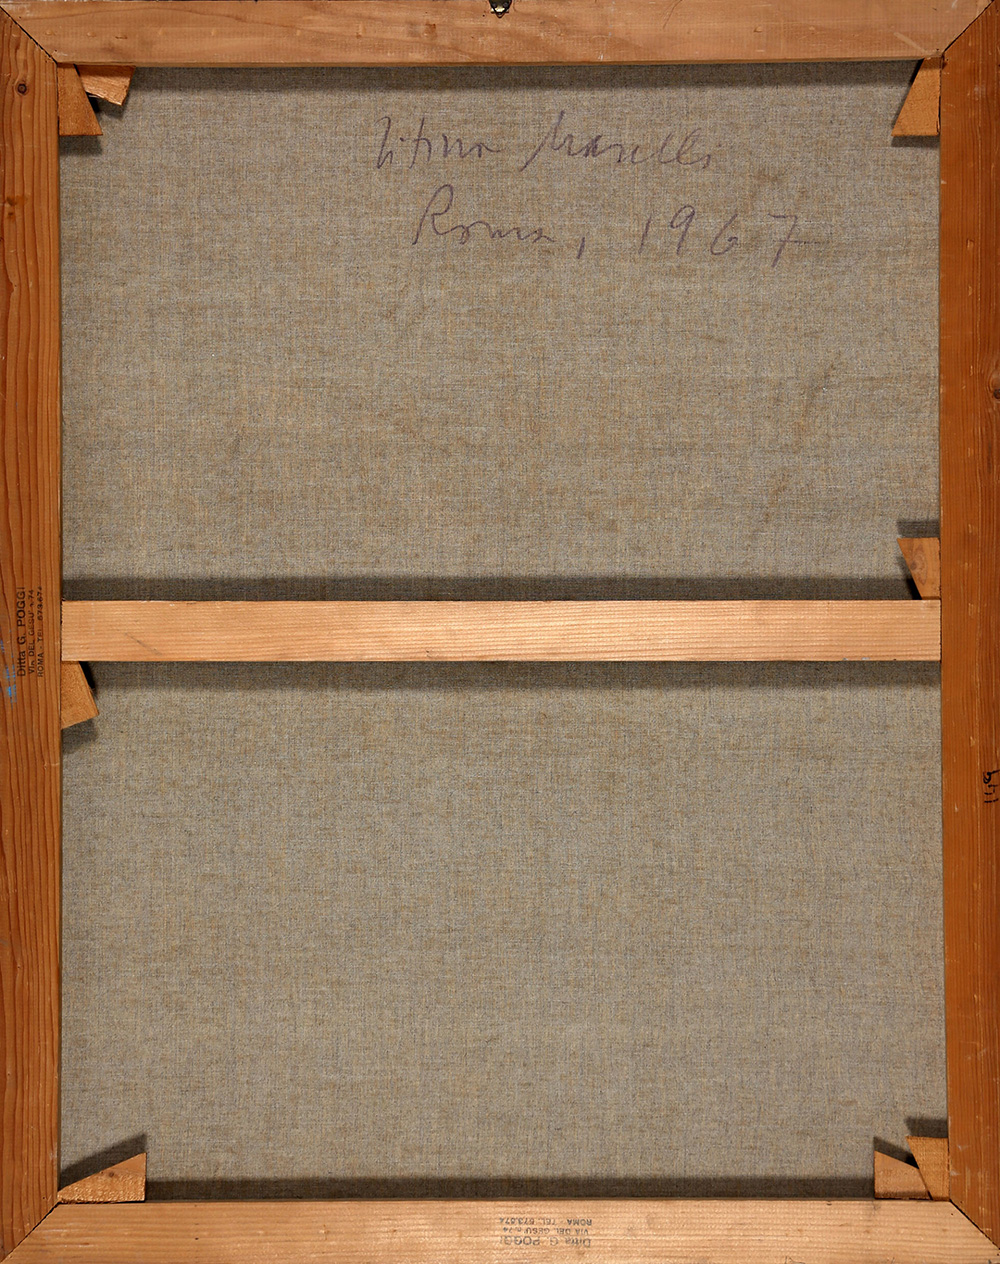 Titina Maselli
Roma, 1967
Ditta G. POGGI
VIA DEL GESU' n. 74
ROMA - TEL. 673.674
Ditta G. POGGI
VIA DEL GESU' n. 74
ROMA - TEL. 673.674